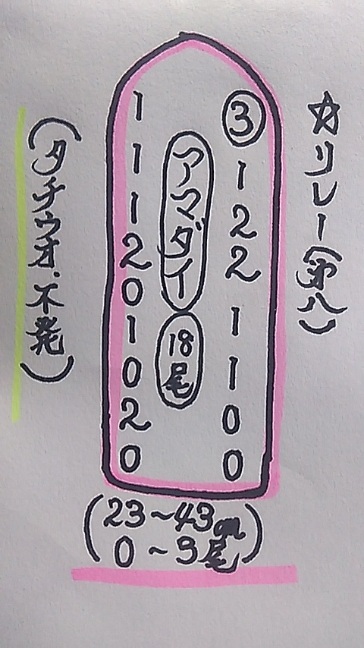 ☆リレー(第八)
③
1
2
2
1
1
0
0
アマダイ
18尾
1
1
1
2
0
1
0
2
0
(タチウオ.不発)
(23~43cm
0~3尾)